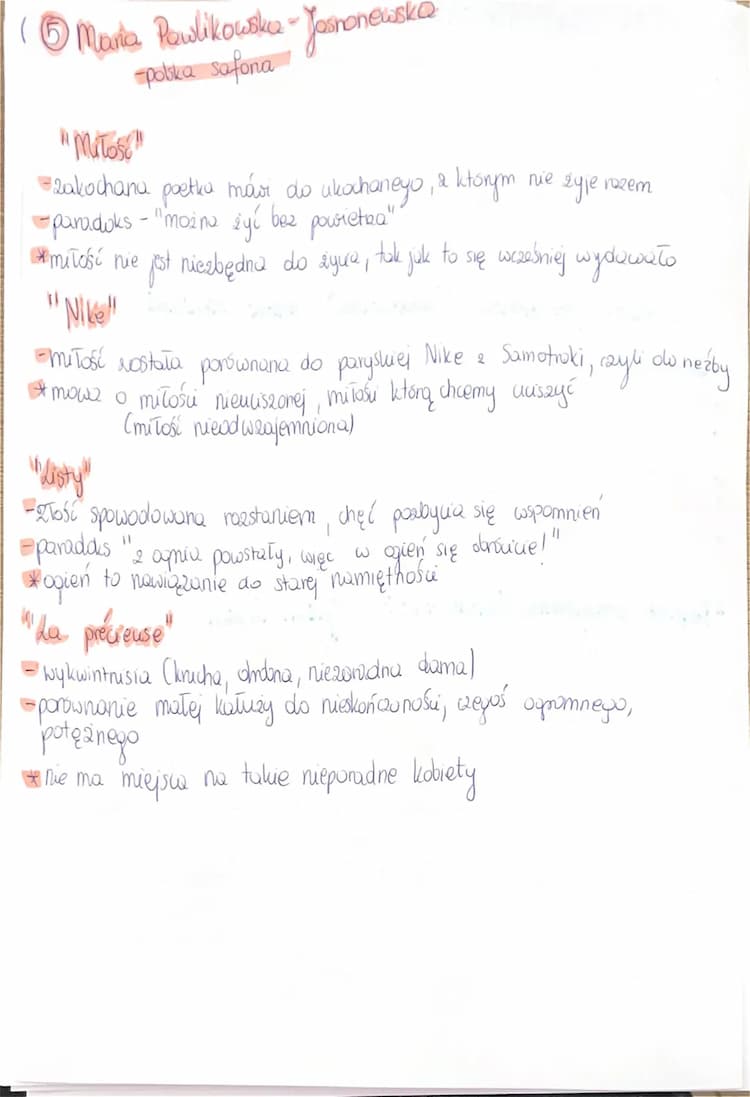 ( ⑤ Maria Pawlikowska-Jasnorzewska
-polska safona
"Miłość"
-zakochana poetka mówi do ukochanego, z którym nie żyje razem
-paradoks - "można żyć bez powietrza"
*miłość nie jest niezbędna do życia, tak jak to się wcześniej wydawało
"Nike"
-miłość została porównana do paryskiej Nike z Samotraki, czyli do rzeźby
*mowa o miłości nieuciszonej, miłości którą chcemy uciszyć
(miłość nieodwzajemniona)
"Listy"
-złość spowodowana rozstaniem, chęć pozbycia się wspomnień
-paradoks "z ognia powstały, więc w ogień się obróćcie!"
*ogień to nawiązanie do starej namiętności
"La précieuse"
-wykwintnisia (krucha, drobna, niezaradna dama)
-porównanie małej kałuży do nieskończoności, czegoś ogromnego,
potężnego
*nie ma miejsca na takie nieporadne kobiety